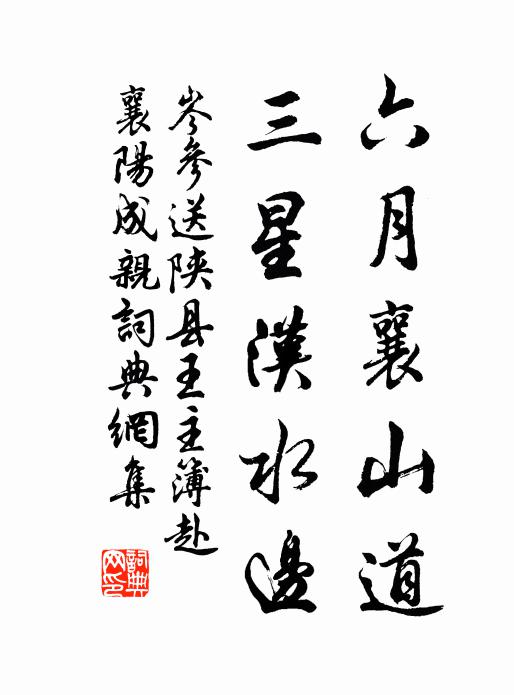 六月襄山道
三星漢水邊
岑參送陝县王主簿赴
襄陽成親詞典網集
詞典
网印